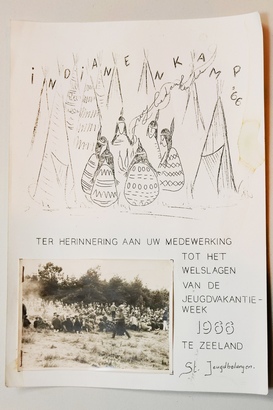 INDIANENKAMP '66
TER HERINNERING AAN UW MEDEWERKING
TOT HET
WELSLAGEN
VAN DE
JEUGDVAKANTIE-
WEEK
1966
TE ZEELAND
St. Jeugdbelangen.